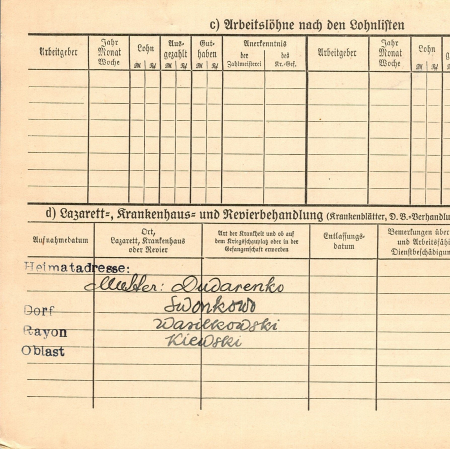 c) Arbeitslöhne nach den Lohnlisten
Arbeitgeber Jahr Monat Woche Lohn Aus- gezahlt Gut- haben Anerkenntnis Arbeitgeber Jahr Monat Woche Lohn
ℛℳ ₰ ℛℳ ₰ ℛℳ ₰ der Zahlmeisterei des Kr.-Gef. ℛℳ ₰
d) Lazarett-, Krankenhaus- und Revierbehandlung (Krankenblätter, D.B.-Verhandlu
Aufnahmedatum Ort, Lazarett, Krankenhaus oder Revier Art der Krankheit und ob auf dem Kriegsschauplatz oder in der Gefangenschaft erworben Entlassungs- datum Bemerkungen über und Arbeitsfäh Dienstbeschädigun
Heimatadresse:
Mutter: Dudarenko
Dorf Swonkowo
Rayon Wasilkowski
Oblast Kiewski